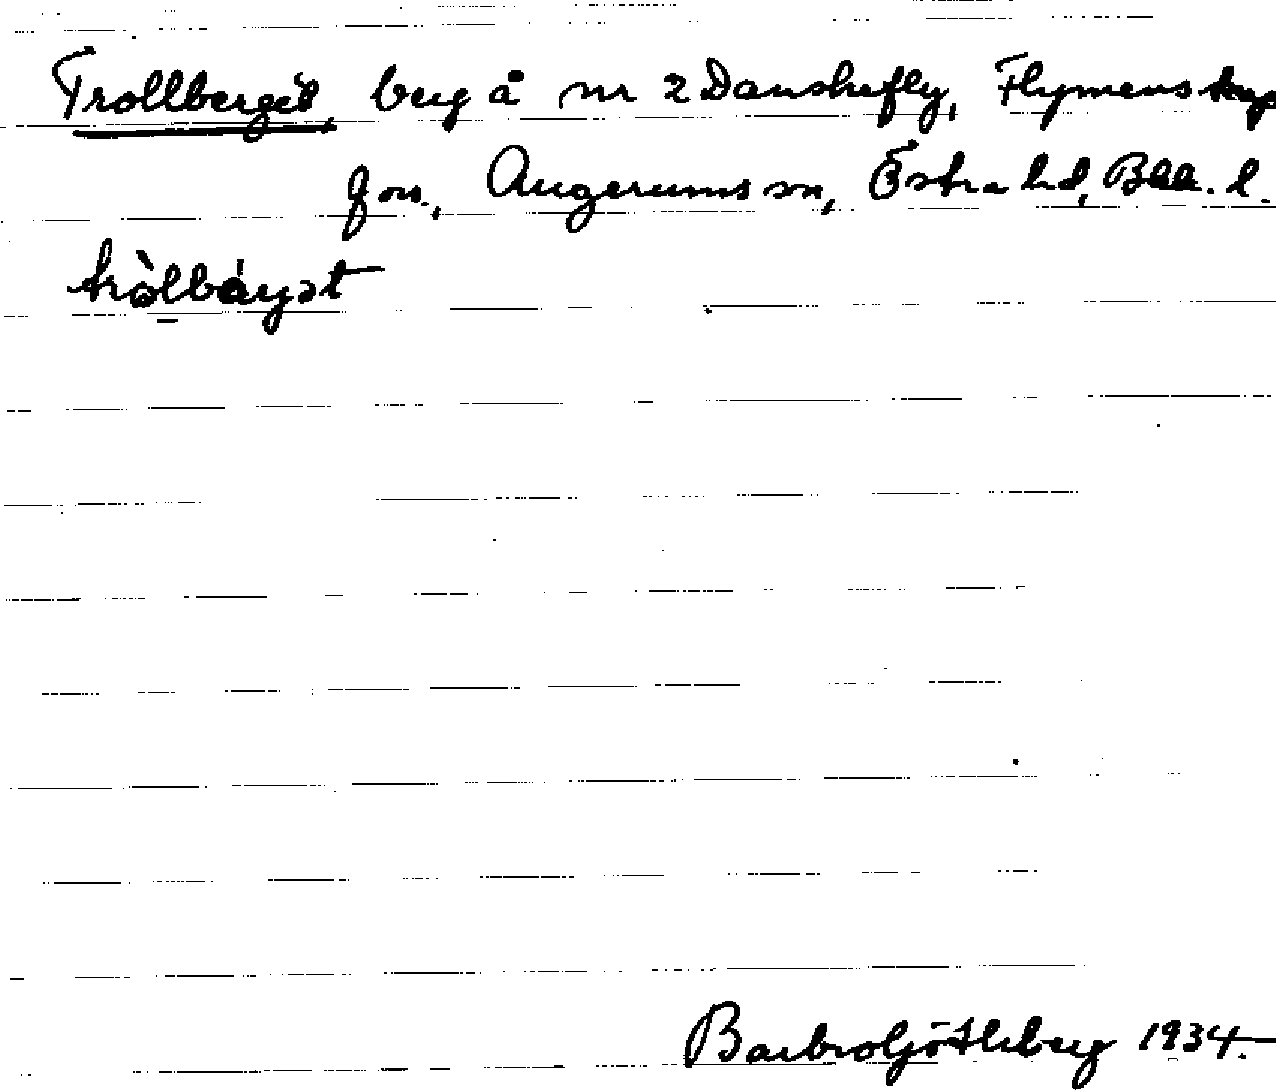 Trollberget, berg å nr 2 Danskefly, Flymens kap
fs., Augerums sn, Östra hd, Blek. l.
tròlbǽrjət
Barbro Götherberg 1934.